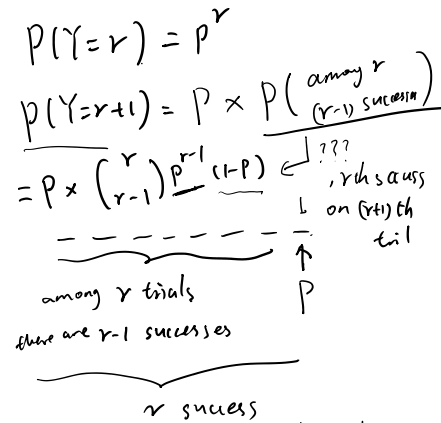 P(Y=r) = p^r
P(Y=r+1) = P × P( among r
(r-1) success
= P × (r r-1) p^{r-1} (1-P)
???
, rth sauss
on (r+1)th
tril
among r trials
P
there are r-1 successes
r success